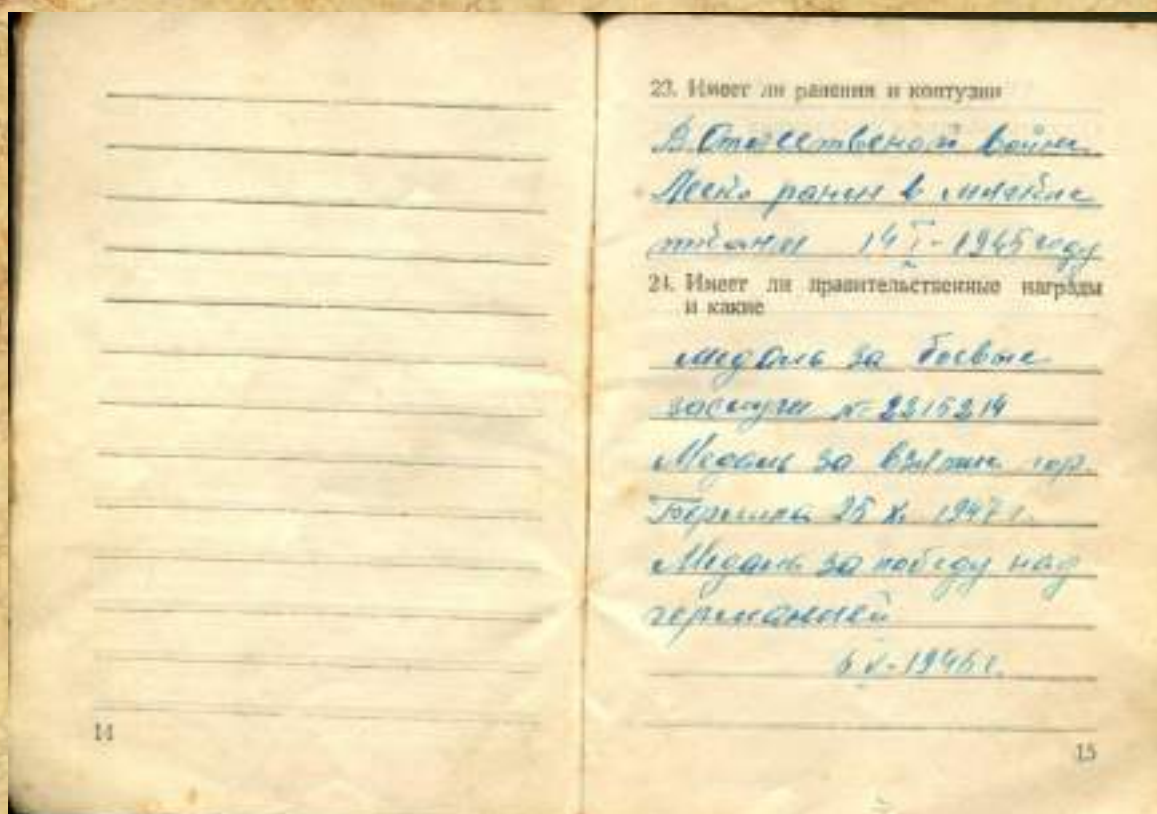 14
23. Имеет ли ранения и контузии
В Отечественой войне
Легко ранен в мягкие
ткани 14 I - 1945 году
24. Имеет ли правительственные награды
и какие
медаль за боевые
заслуги № 2215214
Медаль за взятие гор.
Берлина 25 X. 1947 г.
Медаль за победу над
германией
6 V - 1946 г.
15